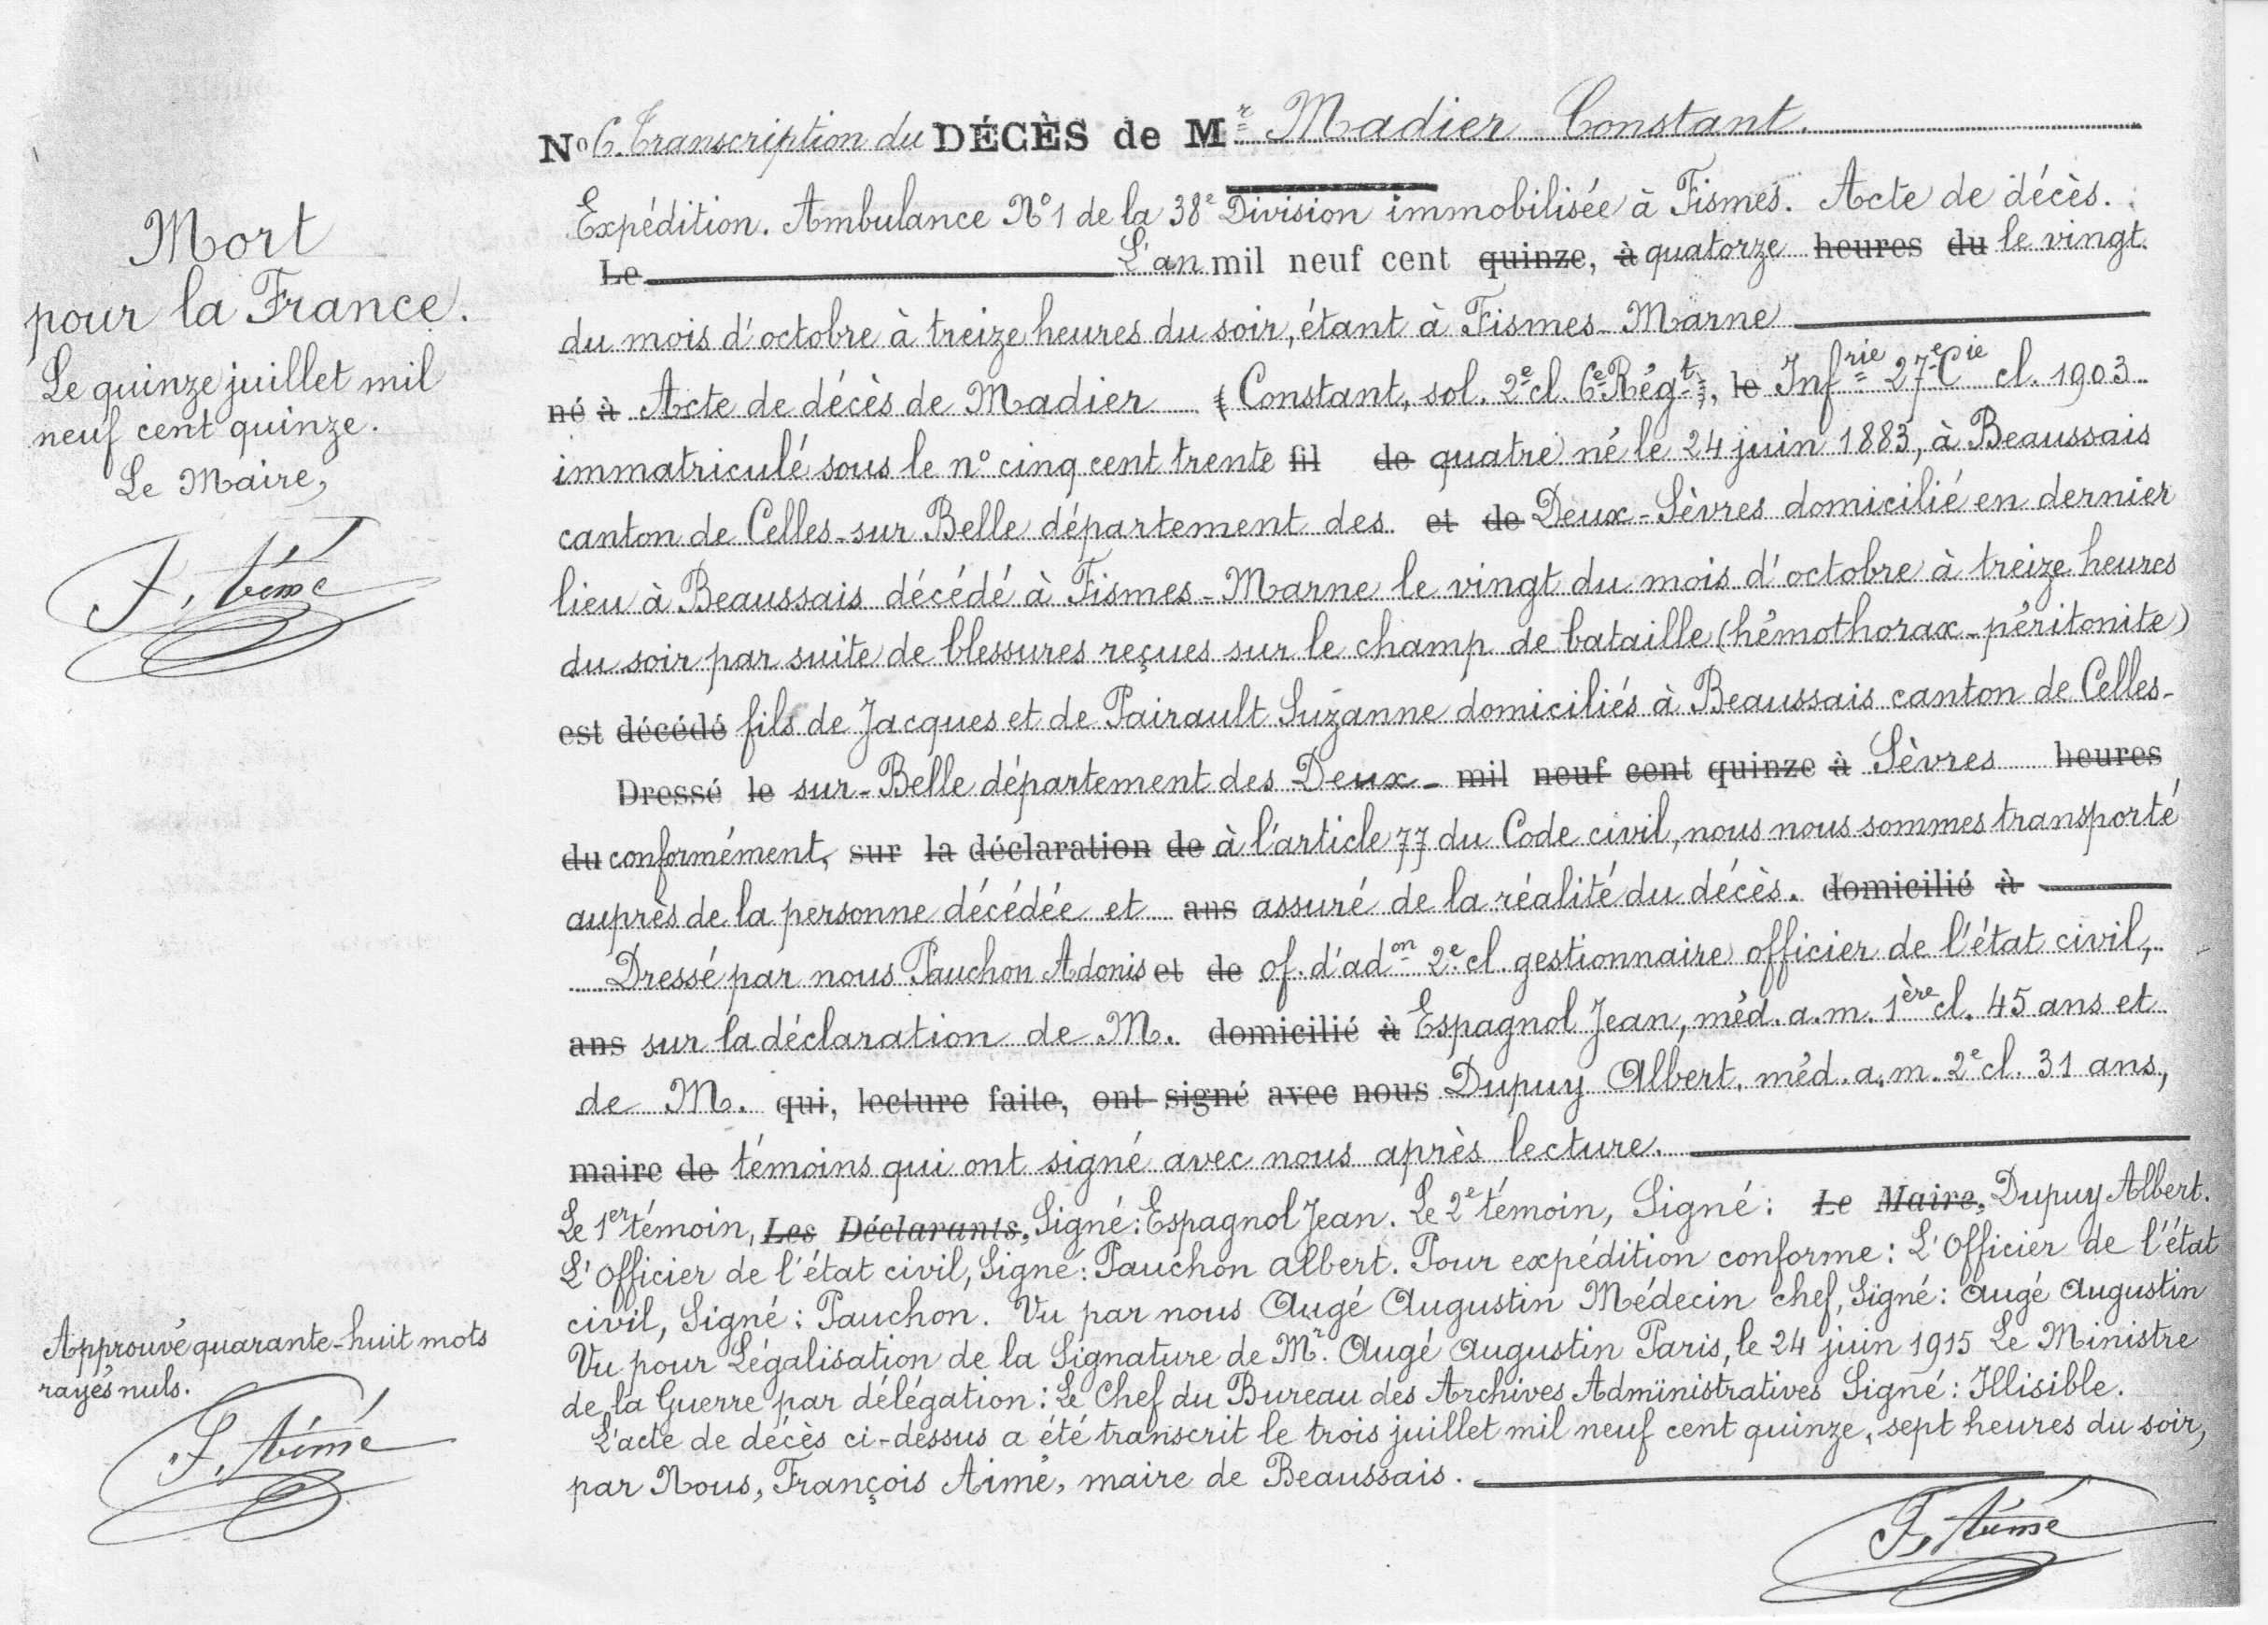 Nº 6. Transcription du DÉCÈS de Mr Madier Constant.
Expédition. Ambulance Nº 1 de la 38e Division immobilisée à Fismes. Acte de décès.
Le L'an mil neuf cent quinze, à quatorze heures du le vingt
du mois d'octobre à treize heures du soir, étant à Fismes-Marne
né à Acte de décès de Madier (Constant, sol. 2e cl. 6e Régt), le Infrie 27e Cie cl. 1903
immatriculé sous le nº cinq cent trente fil de quatre né le 24 juin 1883, à Beaussais
canton de Celles-sur Belle département des et de Deux-Sèvres domicilié en dernier
lieu à Beaussais décédé à Fismes-Marne le vingt du mois d'octobre à treize heures
du soir par suite de blessures reçues sur le champ de bataille (hémothorax-péritonite)
est décédé fils de Jacques et de Pairault Suzanne domiciliés à Beaussais canton de Celles-
Dressé le sur-Belle département des Deux- mil neuf cent quinze à Sèvres heures
du conformément, sur la déclaration de à l'article 77 du Code civil, nous nous sommes transporté
auprès de la personne décédée et ans assuré de la réalité du décès. domicilié à
Dressé par nous Pauchon Adonis et de of. d'adon 2e cl. gestionnaire officier de l'état civil,
ans sur la déclaration de M. domicilié à Espagnol Jean, méd. a. m. 1ère cl. 45 ans et
de M. qui, lecture faite, ont signé avec nous Dupuy Albert, méd. a. m. 2e cl. 31 ans,
maire de témoins qui ont signé avec nous après lecture.
Le 1er témoin, Les Déclarants, Signé: Espagnol Jean. Le 2e témoin, Signé: Le Maire, Dupuy Albert.
L'Officier de l'état civil, Signé: Pauchon Albert. Pour expédition conforme: L'Officier de l'état
civil, Signé: Pauchon. Vu par nous Augé Augustin Médecin chef, Signé: Augé Augustin
Vu pour Légalisation de la Signature de Mr. Augé Augustin Paris, le 24 juin 1915 Le Ministre
de la Guerre par délégation: Le Chef du Bureau des Archives Administratives Signé: Illisible.
L'acte de décès ci-dessus a été transcrit le trois juillet mil neuf cent quinze, sept heures du soir,
par Nous, François Aimé, maire de Beaussais.
F. Aimé
Mort
pour la France.
Le quinze juillet mil
neuf cent quinze.
Le Maire,
F. Aimé
Approuvé quarante-huit mots
rayés nuls.
F. Aimé